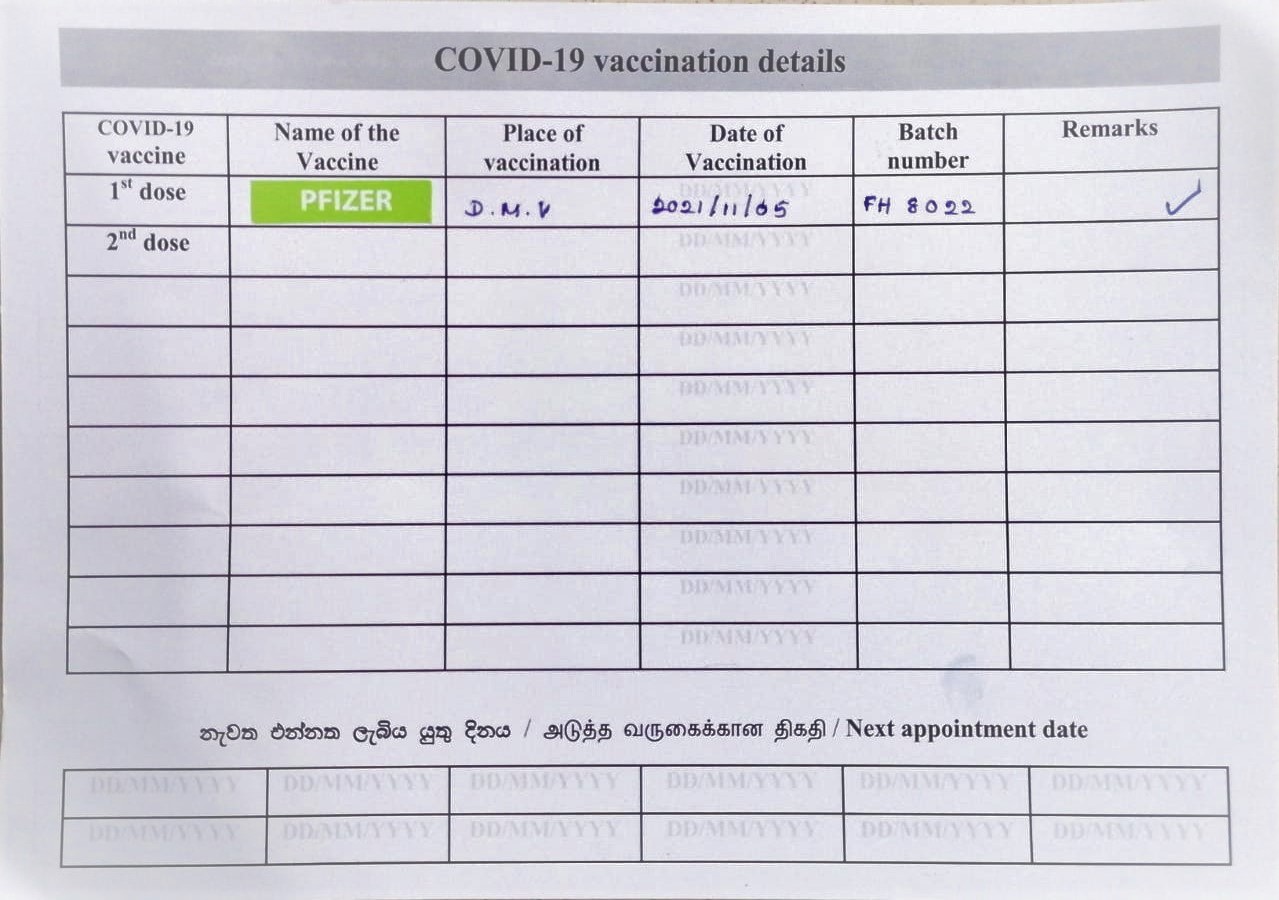 COVID-19 vaccination details
COVID-19 vaccine Name of the Vaccine Place of vaccination Date of Vaccination Batch number Remarks
1st dose PFIZER D.M.V DD/MM/YYYY 2021/11/05 FH 8022 ✓
2nd dose DD/MM/YYYY
DD/MM/YYYY
DD/MM/YYYY
DD/MM/YYYY
DD/MM/YYYY
DD/MM/YYYY
DD/MM/YYYY
DD/MM/YYYY
DD/MM/YYYY
නැවත එන්නත ලැබිය යුතු දිනය / அடுத்த வருகைக்கான திகதி / Next appointment date
DD/MM/YYYY DD/MM/YYYY DD/MM/YYYY DD/MM/YYYY DD/MM/YYYY DD/MM/YYYY
DD/MM/YYYY DD/MM/YYYY DD/MM/YYYY DD/MM/YYYY DD/MM/YYYY DD/MM/YYYY